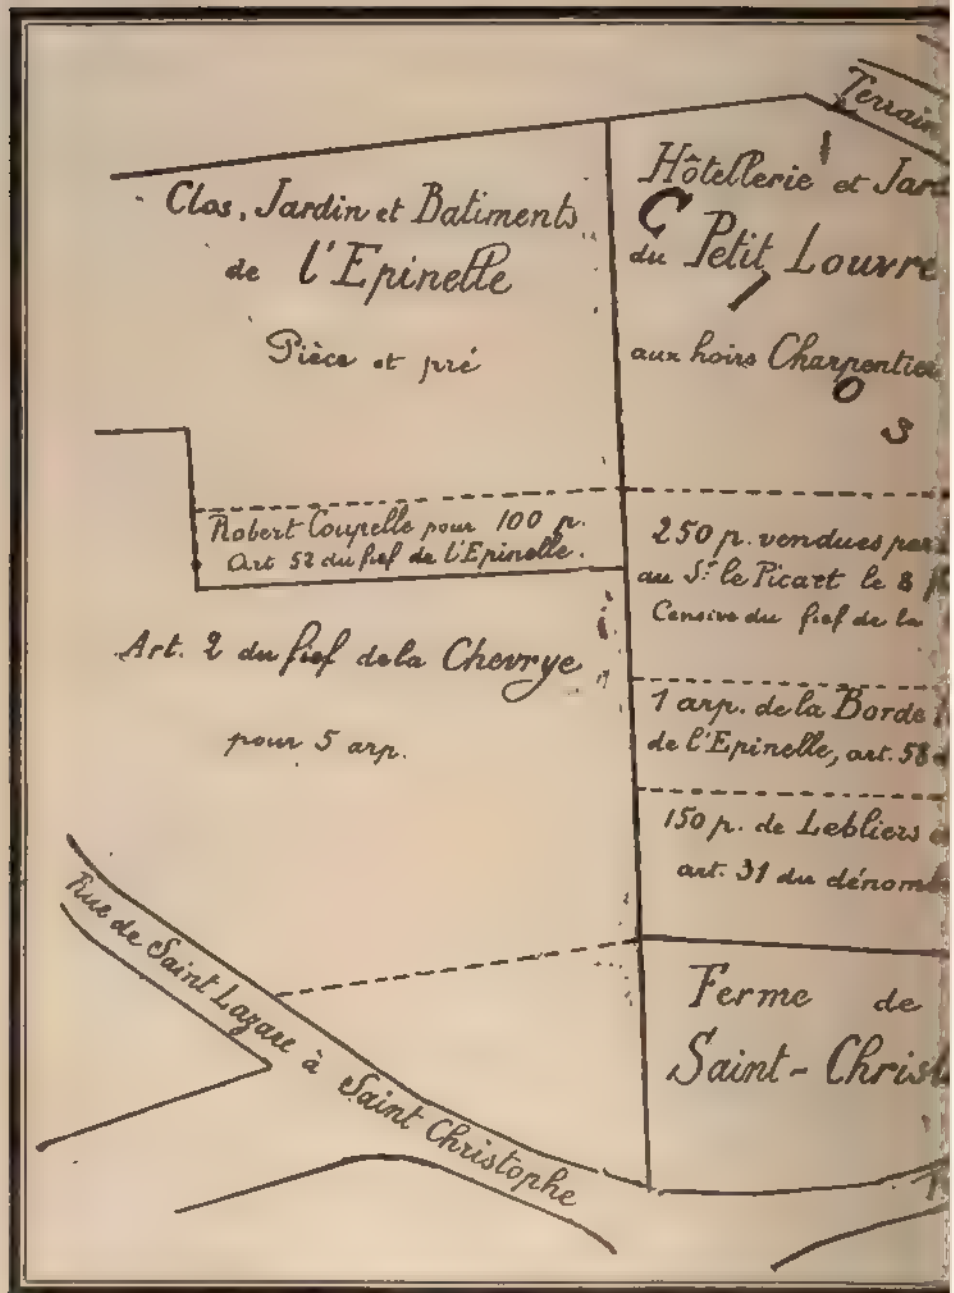 Clos, Jardin et Batiments
de l'Epinelle
Pièce et pré
Robert Coupelle pour 100 p.
Art 52 du fief de l'Epinelle.
Art. 2 du fief de la Chevrye
pour 5 arp.
Rue de Saint Lazare à Saint Christophe
Terrain
Hôtellerie et Jard
du Petit Louvre
aux hoirs Charpentier
C
O
3
250 p. vendues par
au Sr. le Picart le 8
Censive du fief de la
1 arp. de la Borde
de l'Epinelle, art. 58
150 p. de Lebliers
art. 31 du dénom
Ferme de
Saint-Christ